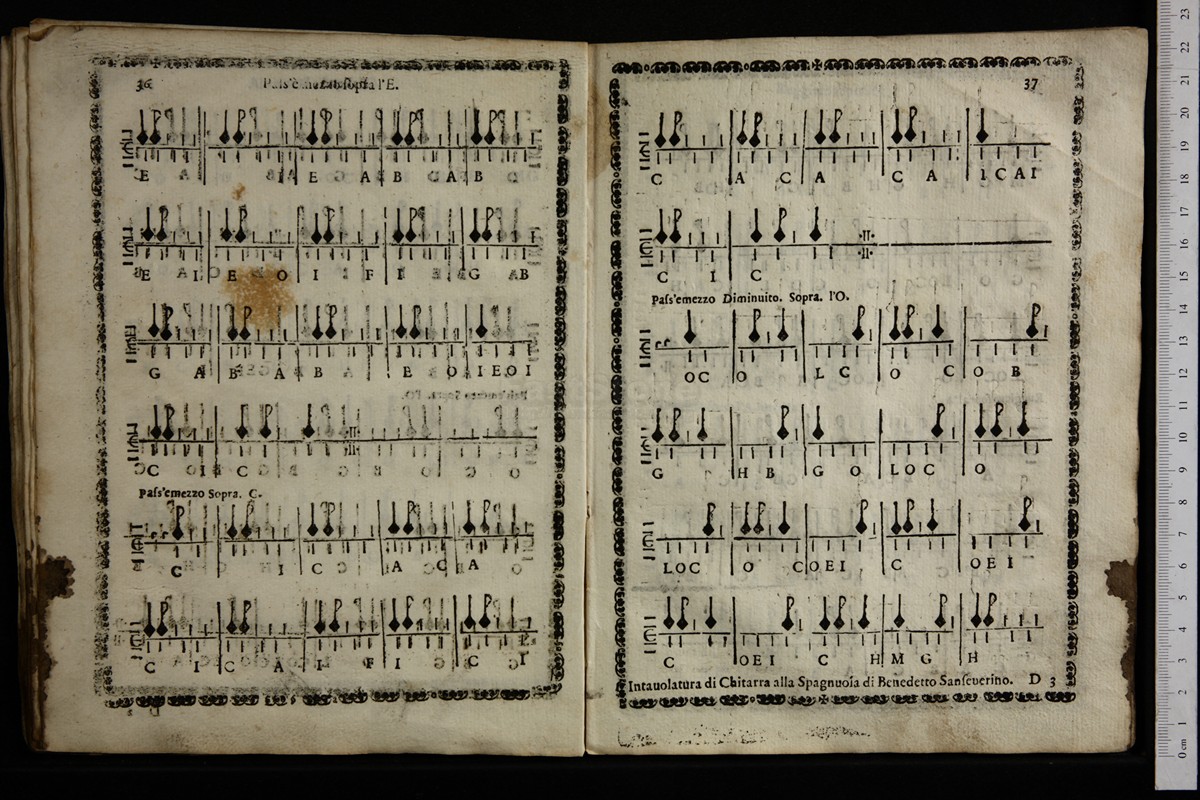 36
Pass'emezzo sopra l'E.
E A B A E G A B G A B G
E A I E O I F I G A B
G A B A B A E O I E O I
C O I C
Pass'emezzo Sopra. C.
C I C A C A
C C A I F I C I
37
C A C A C A I C A I
C I C
Pass'emezzo Diminuito. Sopra. l'O.
O C O L C O C O B
G H B G O L O C O
L O C O C O E I C O E I
C O E I C H M G H
Intauolatura di Chitarra alla Spagnuola di Benedetto Sanseuerino. D 3